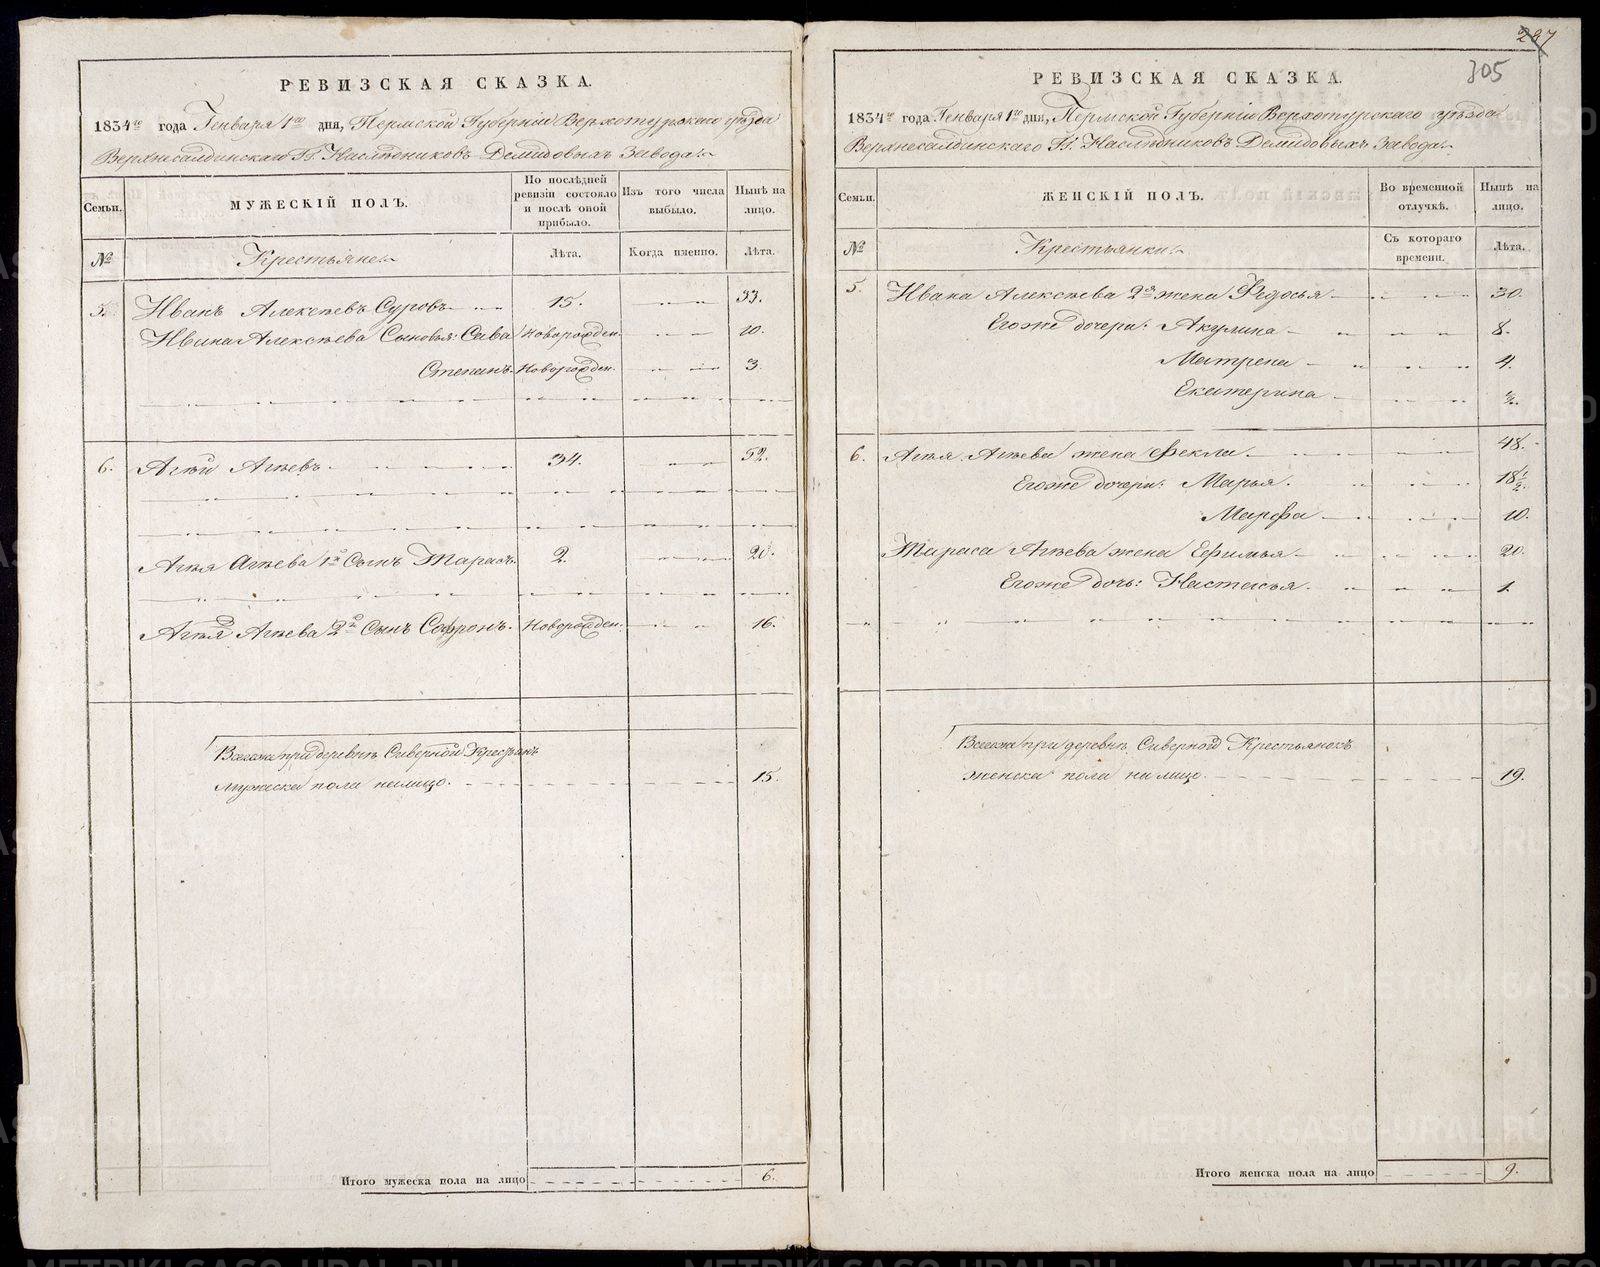 РЕВИЗСКАЯ СКАЗКА.
1834го года Генваря 1го дня, Пермской Губернiи Верхотурскаго уѣзда
Верхнесалдинскаго Гг. Наслѣдниковъ Демидовыхъ Завода.
Семьи.
МУЖЕСКІЙ ПОЛЪ.
По послѣдней ревизіи состояло и послѣ оной прибыло.
Изъ того числа выбыло.
Нынѣ на лицо.
№
Крестьяне.
Лѣта.
Когда именно.
Лѣта.
5. Иванъ Алексѣевъ Суровъ 15. 33.
Ивана Алексѣева Сыновья: Сава Новорожден. 10.
Степанъ Новорожден. 3.
6. Агѣй Агѣевъ 34. 52.
Агѣя Агѣева 1й Сынъ Тарасъ 2. 20.
Агѣя Агѣева 2й Сынъ Софронъ. Новорожден. 16.
Всегоже при деревнѣ Сѣверной Крестьянъ
мужеска пола налицо. 15.
Итого мужеска пола на лицо 6.
287
305
РЕВИЗСКАЯ СКАЗКА.
1834го года Генваря 1го дня, Пермской Губернiи Верхотурскаго уѣзда
Верхнесалдинскаго Гг. Наслѣдниковъ Демидовыхъ Завода.
Семьи.
ЖЕНСКІЙ ПОЛЪ.
Во временной отлучкѣ.
Нынѣ на лицо.
№
Крестьянки.
Съ котораго времени.
Лѣта.
5. Ивана Алексѣева 2я жена Федосья 30.
Егоже дочери: Акулина 8.
Матрена 4.
Екатерина ½.
6. Агѣя Агѣева жена Фекла 48.
Егоже дочери: Марья. 18½.
Марфа 10.
Тараса Агѣева жена Ефимья 20.
Егоже дочь: Настасья. 1.
Всегоже при деревнѣ Сѣверной Крестьянокъ
женска пола на лицо 19.
Итого женска пола на лицо 9.
METRIKI.GASO-URAL.RU